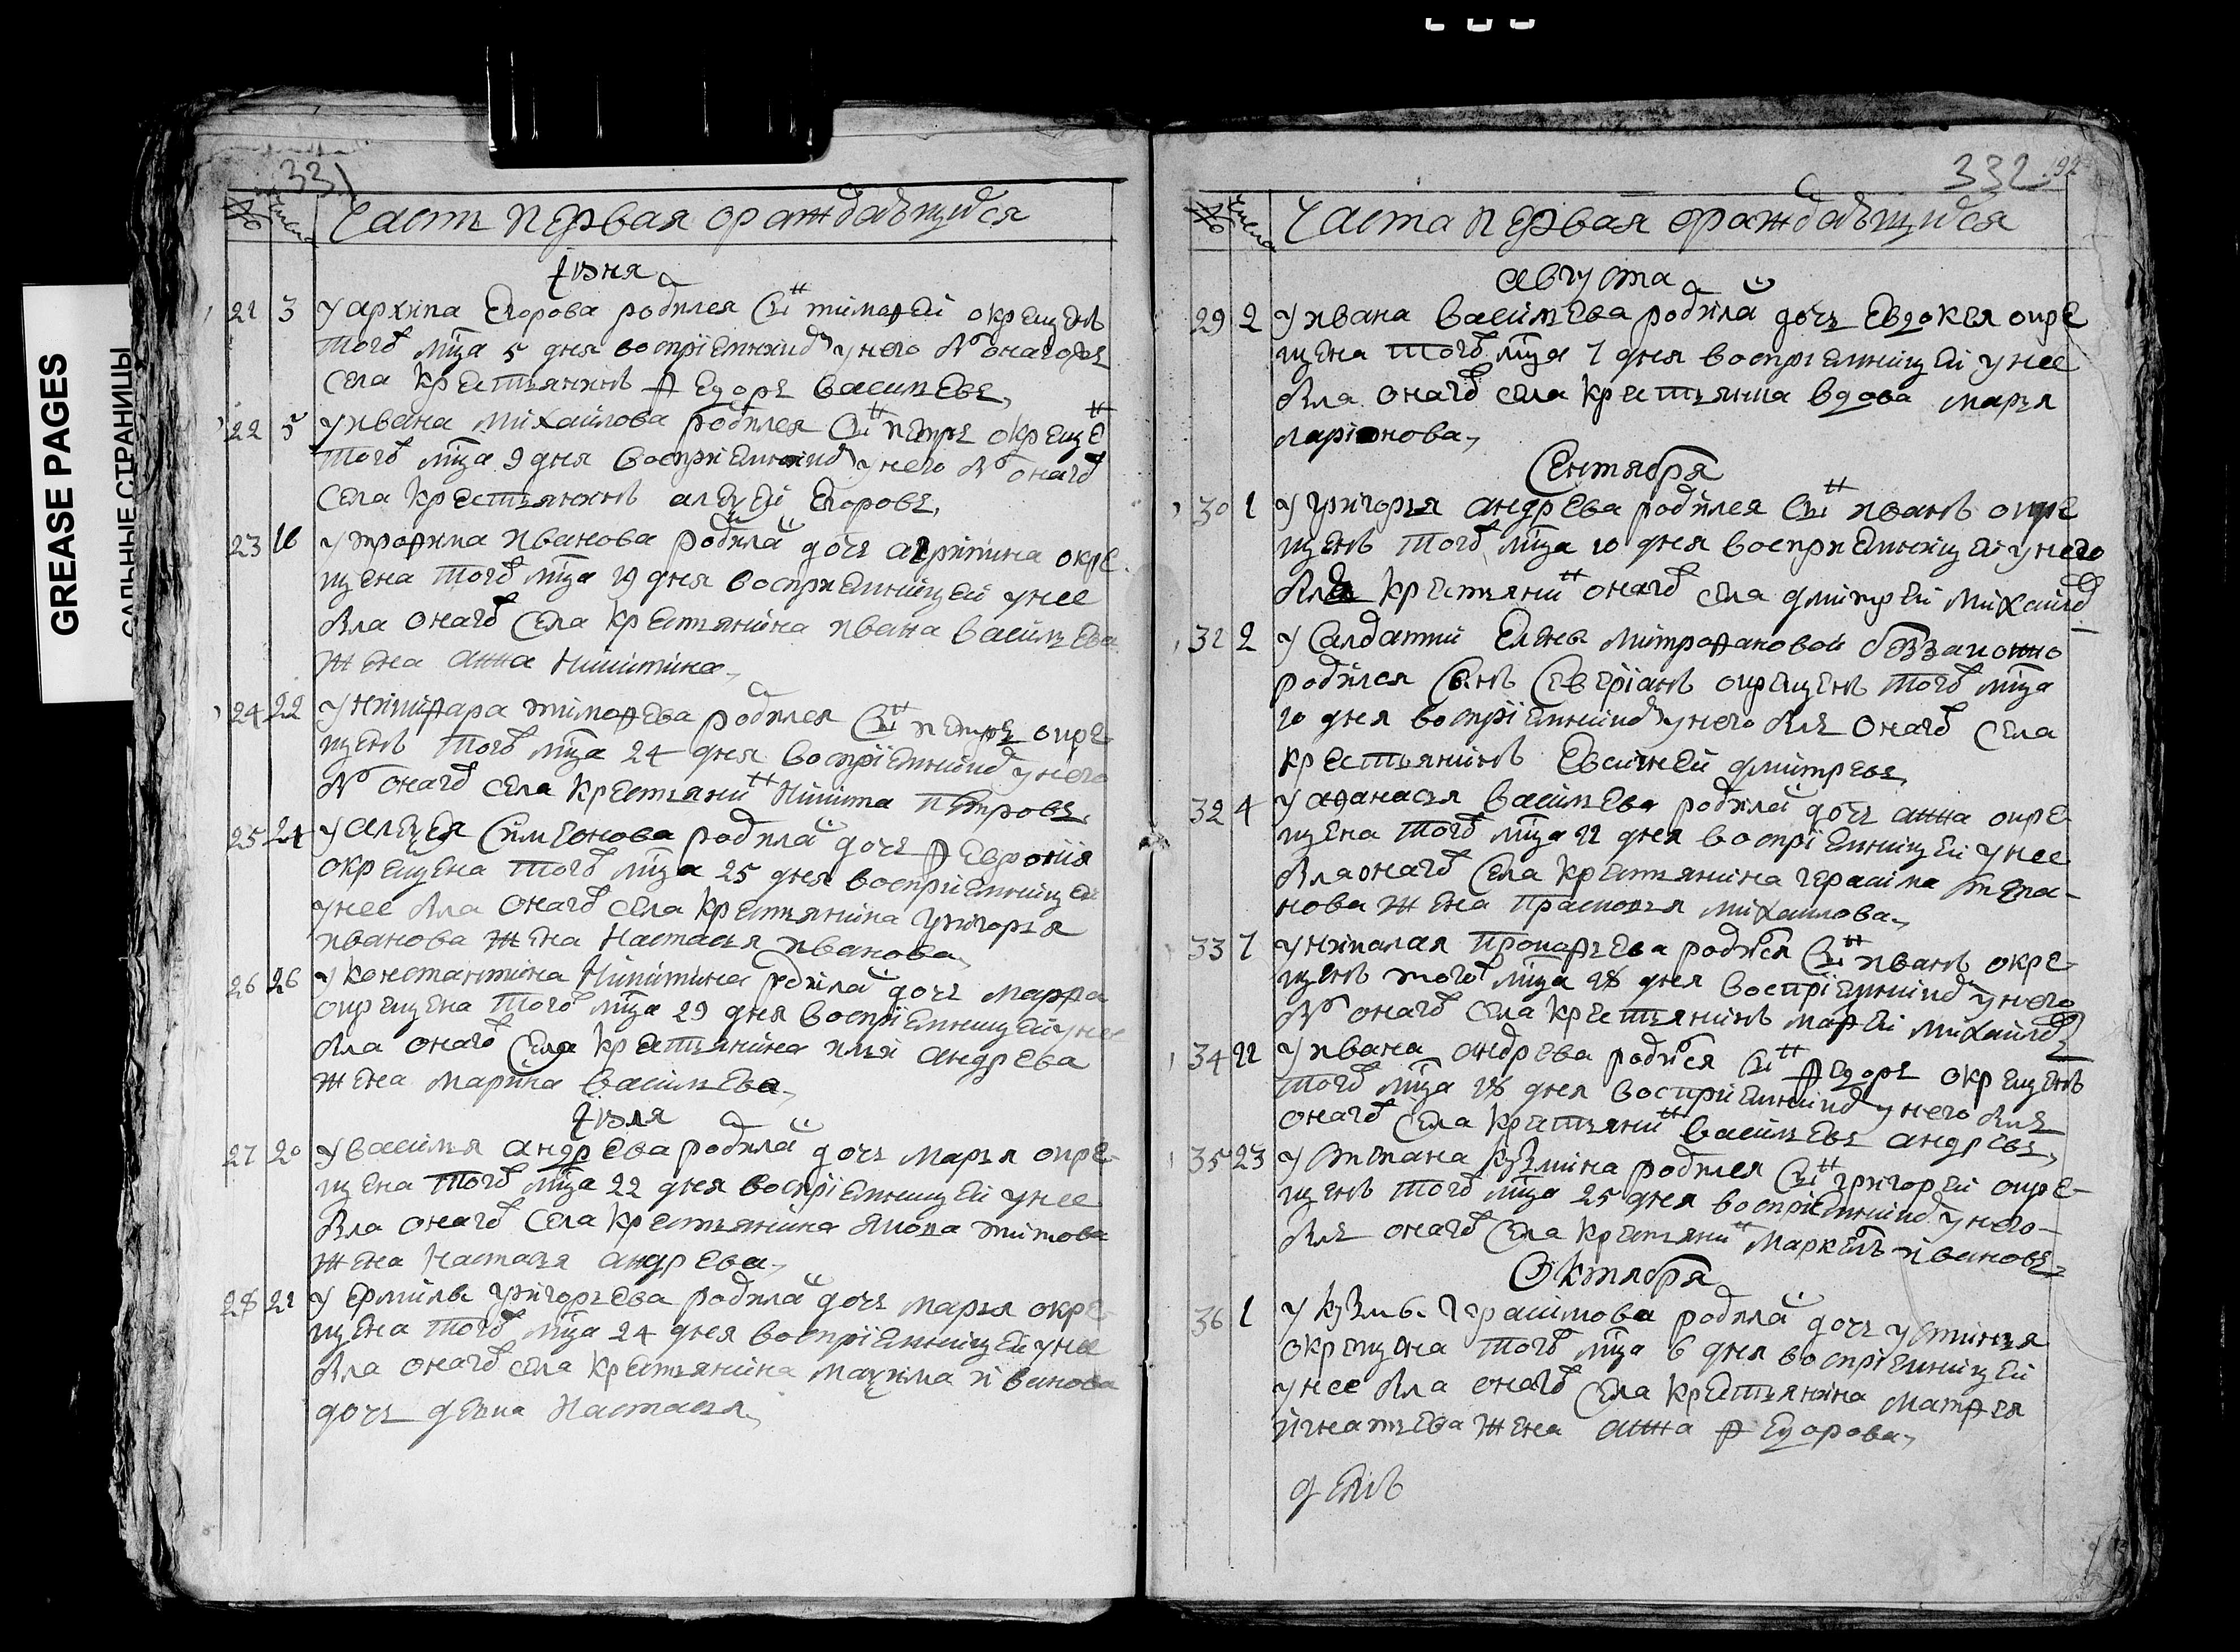 GREASE PAGES
САЛЬНЫЕ СТРАНИЦЫ
331
№ числа Часть первая ораждаѣщихся
Іюня
21 3 У архипа Егорова родился Сын тимофеи окрещенъ
того мца 5 дня восприемникомъ унего былъ онагожъ
села крестьянинъ Федоръ васильевъ,
22 5 У ивана михаилова родился Сын петръ окрещен
того мца 9 дня восприемникомъ унего былъ онаго
села крестьянинъ алеѯеи Егоровъ,
23 16 У трофима иванова родилас дочь агрипина окре-
щена того мца 19 дня восприемницеи унее
была онаго села крестьянина ивана васильева
жена анна никитина,
24 22 У никифара тимофева родился Сын петръ окре-
щенъ того мца 24 дня восприемникомъ унего
былъ онаго села крестьянин никита петровъ,
25 24 У алеѯея Симеонова родилас дочь Февронія
окрещена того мца 25 дня восприемницеи
унее была онаго села крестьянина григорья
иванова жена настасья иванова,
26 26 У константина никитина родилас дочь марфа
окрещена того мца 29 дня восприемницеи унее
была онаго села крестьянина ильи андрева
жена марина васильева,
Іюля
27 20 У василья андрева родилас дочь марья окре-
щена того мца 22 дня восприемницеи унее
была онаго села крестьянина якова титова
жена настасья андрева,
28 21 У Ермилы григорьева родилас дочь марья окре-
щена того мца 24 дня восприемницеи унее
была онаго села крестьянина маѯима иванова
дочь девка настасья,
332
92
№ числа Часть первая ораждаѣщихся
августа
29 2 У ивана васильева родилас дочь Евдокея окре
щена того мца 7 дня восприемницеи унее
была онаго села крестьянка вдова марья
ларионова,
Сентября
30 1 У григорья андрева родился Сын иванъ окре
щенъ того мца 10 дня восприемникеи унего
был крестьянин онаго села дмитреи михаило
31 2 У Салдатки Елены митрофановой беззаконно
родился Сынъ Севериянъ окрещенъ того мца
10 дня восприемникомъ унего былъ онаго села
крестьянинъ Евсигней дмитревъ,
32 4 У афанасья васильева родилас дочь анна окре-
щена того мца 11 дня восприемницеи унее
была онаго села крестьянина герасима степа-
нова жена прасковья михаилова,
33 7 У николая прокофьева родился Сын иванъ окре-
щенъ того мца 18 дня восприемникомъ унего
былъ онаго села крестьянинъ мафеи михаило
34 11 У ивана андрева родился Сын Федоръ окрещенъ
того мца 18 дня восприемникомъ унего былъ
онаго села крестьянин васильевъ андревъ,
35 23 У Степана кузмина родился Сын григореи окре-
щенъ того мца 25 дня восприемникомъ унего
былъ онаго села крестьянин маркелъ ивановъ,
Октября
36 1 У кузмы Герасимова родилас дочь устинья
окрещена того мца 6 дня восприемницеи
унее была онаго села крестьянина матфея
игнатьева жена анна Федорова,